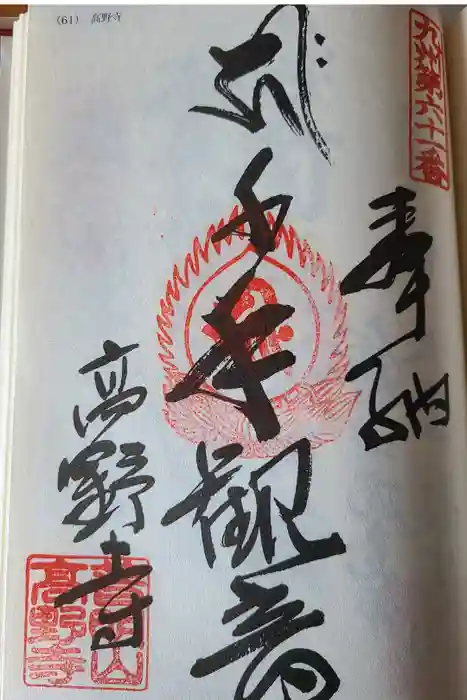 (61) 高野寺
九州第六十一番
奉納
千手観音
高野寺
高野寺